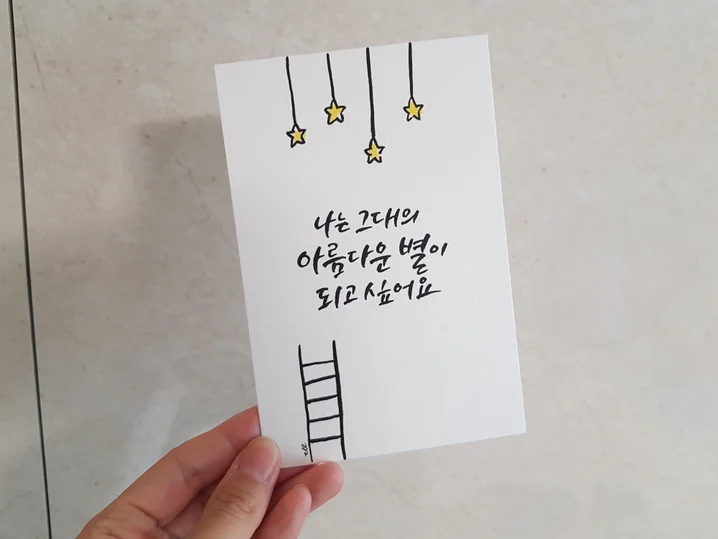 나는 그대의
아름다운 별이
되고 싶어요